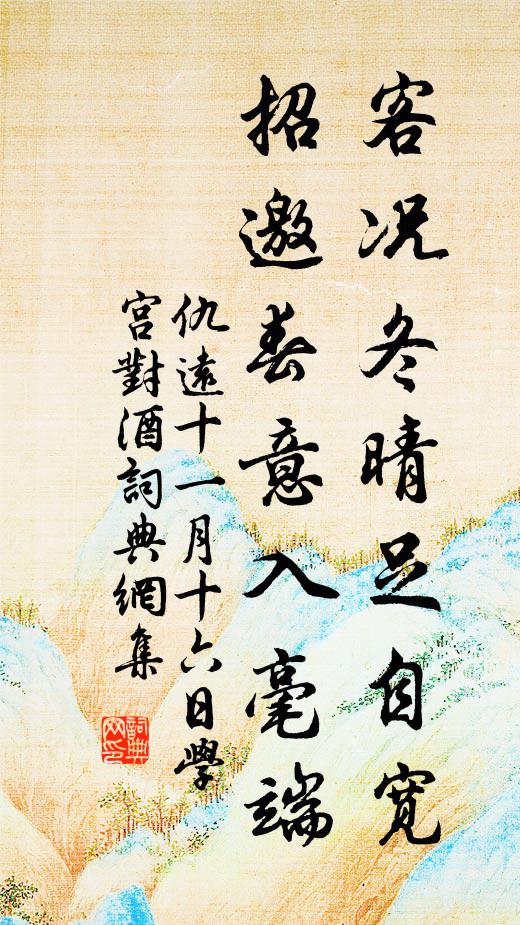 客况冬晴足自寬
招邀春意入毫端
仇遠十一月十六日學
宮對酒詞典網集
詞典
网印